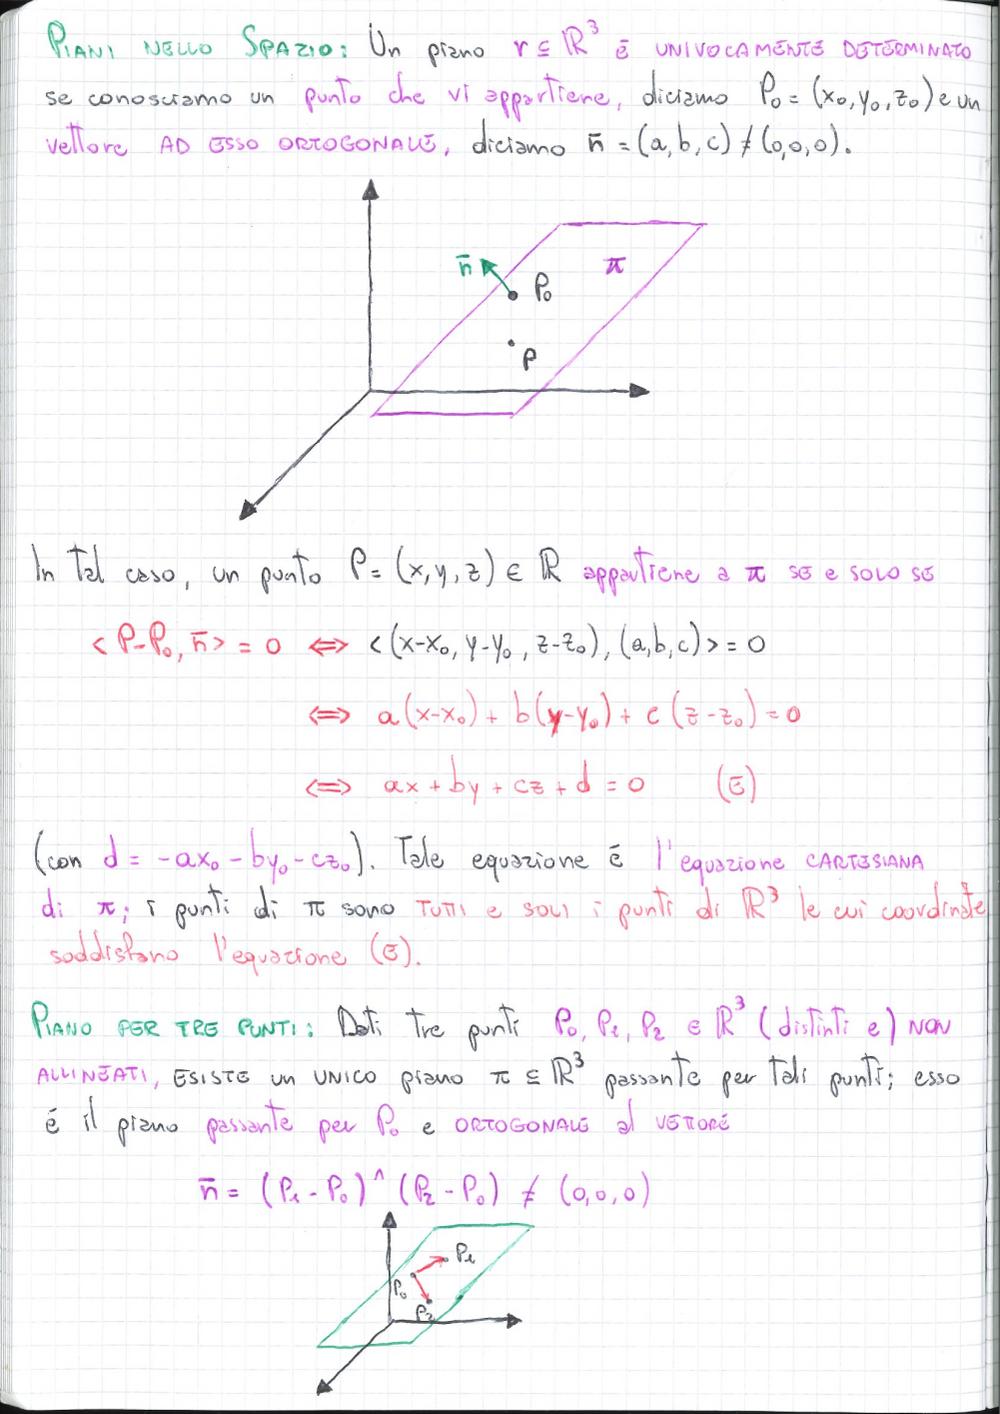 PIANI NELLO SPAZIO: Un piano r ⊆ ℝ³ è UNIVOCAMENTE DETERMINATO
se conosciamo un punto che vi appartiene, diciamo P₀ = (x₀, y₀, z₀) e un
vettore AD ESSO ORTOGONALE, diciamo n̄ = (a, b, c) ≠ (0,0,0).
n̄
P₀
π
P
In tal caso, un punto P = (x, y, z) ∈ ℝ appartiene a π se e solo se
< P-P₀, n̄ > = 0 ⟺ < (x-x₀, y-y₀, z-z₀), (a,b,c) > = 0
⟺ a(x-x₀) + b(y-y₀) + c(z-z₀) = 0
⟺ ax + by + cz + d = 0 (E)
(con d = -ax₀ - by₀ - cz₀). Tale equazione è l'equazione CARTESIANA
di π; i punti di π sono TUTTI e SOLI i punti di ℝ³ le cui coordinate
soddisfano l'equazione (E).
PIANO PER TRE PUNTI: Dati tre punti P₀, P₁, P₂ ∈ ℝ³ (distinti e) NON
ALLINEATI, ESISTE un UNICO piano π ⊆ ℝ³ passante per tali punti; esso
è il piano passante per P₀ e ORTOGONALE al VETTORE
n̄ = (P₁ - P₀) ^ (P₂ - P₀) ≠ (0,0,0)
P₁
P₀
P₂